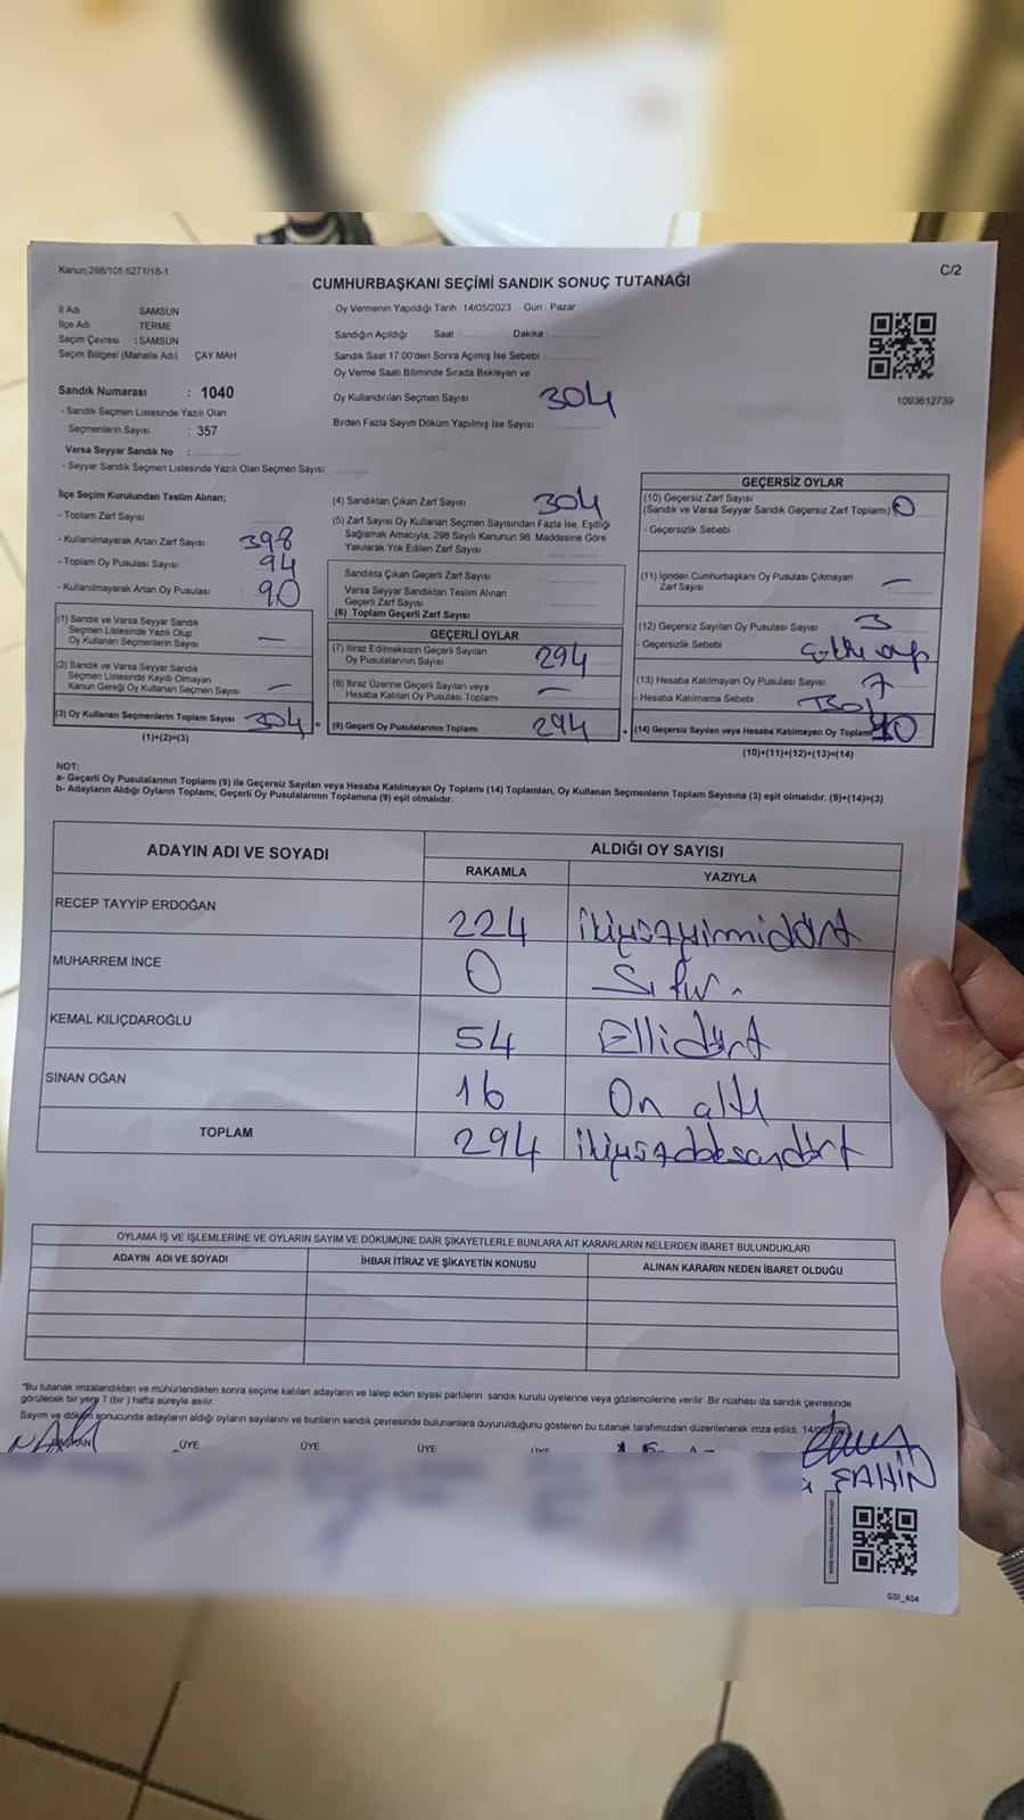 Kanun:298/105,6271/18-1
C/2
CUMHURBAŞKANI SEÇİMİ SANDIK SONUÇ TUTANAĞI
İl Adı SAMSUN
İlçe Adı TERME
Seçim Çevresi : SAMSUN
Seçim Bölgesi (Mahalle Adı) ÇAY MAH
Sandık Numarası : 1040
- Sandık Seçmen Listesinde Yazılı Olan
Seçmenlerin Sayısı : 357
Varsa Seyyar Sandık No :
- Seyyar Sandık Seçmen Listesinde Yazılı Olan Seçmen Sayısı
Oy Vermenin Yapıldığı Tarih : 14/05/2023 Gün : Pazar
Sandığın Açıldığı Saat Dakika :
Sandık Saat 17:00'den Sonra Açılmış İse Sebebi
Oy Verme Saati Bitiminde Sırada Bekleyen ve
Oy Kullandırılan Seçmen Sayısı 304
Birden Fazla Sayım Döküm Yapılmış İse Sayısı
1093612739
İlçe Seçim Kurulundan Teslim Alınan;
- Toplam Zarf Sayısı
- Kullanılmayarak Artan Zarf Sayısı 398
- Toplam Oy Pusulası Sayısı 94
- Kullanılmayarak Artan Oy Pusulası 90
(1) Sandık ve Varsa Seyyar Sandık
Seçmen Listesinde Yazılı Olup
Oy Kullanan Seçmenlerin Sayısı —
(2) Sandık ve Varsa Seyyar Sandık
Seçmen Listesinde Kaydı Olmayan
Kanun Gereği Oy Kullanan Seçmen Sayısı —
(3) Oy Kullanan Seçmenlerin Toplam Sayısı 304
(1)+(2)=(3)
(4) Sandıktan Çıkan Zarf Sayısı 304
(5) Zarf Sayısı Oy Kullanan Seçmen Sayısından Fazla İse, Eşitliği
Sağlamak Amacıyla, 298 Sayılı Kanunun 98. Maddesine Göre
Yakılarak Yok Edilen Zarf Sayısı
Sandıkta Çıkan Geçerli Zarf Sayısı
Varsa Seyyar Sandıktan Teslim Alınan
Geçerli Zarf Sayısı
(6) Toplam Geçerli Zarf Sayısı
GEÇERLİ OYLAR
(7) İtiraz Edilmeksizin Geçerli Sayılan
Oy Pusulalarının Sayısı 294
(8) İtiraz Üzerine Geçerli Sayılan veya
Hesaba Katılan Oy Pusulası Toplamı —
(9) Geçerli Oy Pusulalarının Toplamı 294
GEÇERSİZ OYLAR
(10) Geçersiz Zarf Sayısı
(Sandık ve Varsa Seyyar Sandık Geçersiz Zarf Toplamı) 0
- Geçersizlik Sebebi
(11) İçinden Cumhurbaşkanı Oy Pusulası Çıkmayan
Zarf Sayısı —
(12) Geçersiz Sayılan Oy Pusulası Sayısı 3
- Geçersizlik Sebebi
(13) Hesaba Katılmayan Oy Pusulası Sayısı 7
- Hesaba Katılmama Sebebi
(14) Geçersiz Sayılan veya Hesaba Katılmayan Oy Toplamı 10
(10)+(11)+(12)+(13)=(14)
NOT:
a- Geçerli Oy Pusulalarının Toplamı (9) ile Geçersiz Sayılan veya Hesaba Katılmayan Oy Toplamı (14) Toplamları, Oy Kullanan Seçmenlerin Toplam Sayısına (3) eşit olmalıdır. (9)+(14)=(3)
b- Adayların Aldığı Oyların Toplamı, Geçerli Oy Pusulalarının Toplamına (9) eşit olmalıdır.
ADAYIN ADI VE SOYADI ALDIĞI OY SAYISI
RAKAMLA YAZIYLA
RECEP TAYYİP ERDOĞAN 224 ikiyüzyirmidört
MUHARREM İNCE 0 Sıfır.
KEMAL KILIÇDAROĞLU 54 Ellidört
SİNAN OĞAN 16 On altı
TOPLAM 294 ikiyüzdoksandört
OYLAMA İŞ VE İŞLEMLERİNE VE OYLARIN SAYIM VE DÖKÜMÜNE DAİR ŞİKAYETLERLE BUNLARA AİT KARARLARIN NELERDEN İBARET BULUNDUKLARI
ADAYIN ADI VE SOYADI İHBAR İTİRAZ VE ŞİKAYETİN KONUSU ALINAN KARARIN NEDEN İBARET OLDUĞU
"Bu tutanak imzalandıktan ve mühürlendikten sonra seçime katılan adayların ve talep eden siyasi partilerin sandık kurulu üyelerine veya gözlemcilerine verilir. Bir nüshası da sandık çevresinde
görülecek bir yere 1 (bir) hafta süreyle asılır.
Sayım ve döküm sonucunda adayların aldığı oyların sayılarını ve bunların sandık çevresinde bulunanlara duyurulduğunu gösteren bu tutanak tarafımızdan düzenlenerek imza edildi. 14/05
BAŞKAN ÜYE ÜYE ÜYE ÜYE
ŞAHİN
GSI_404